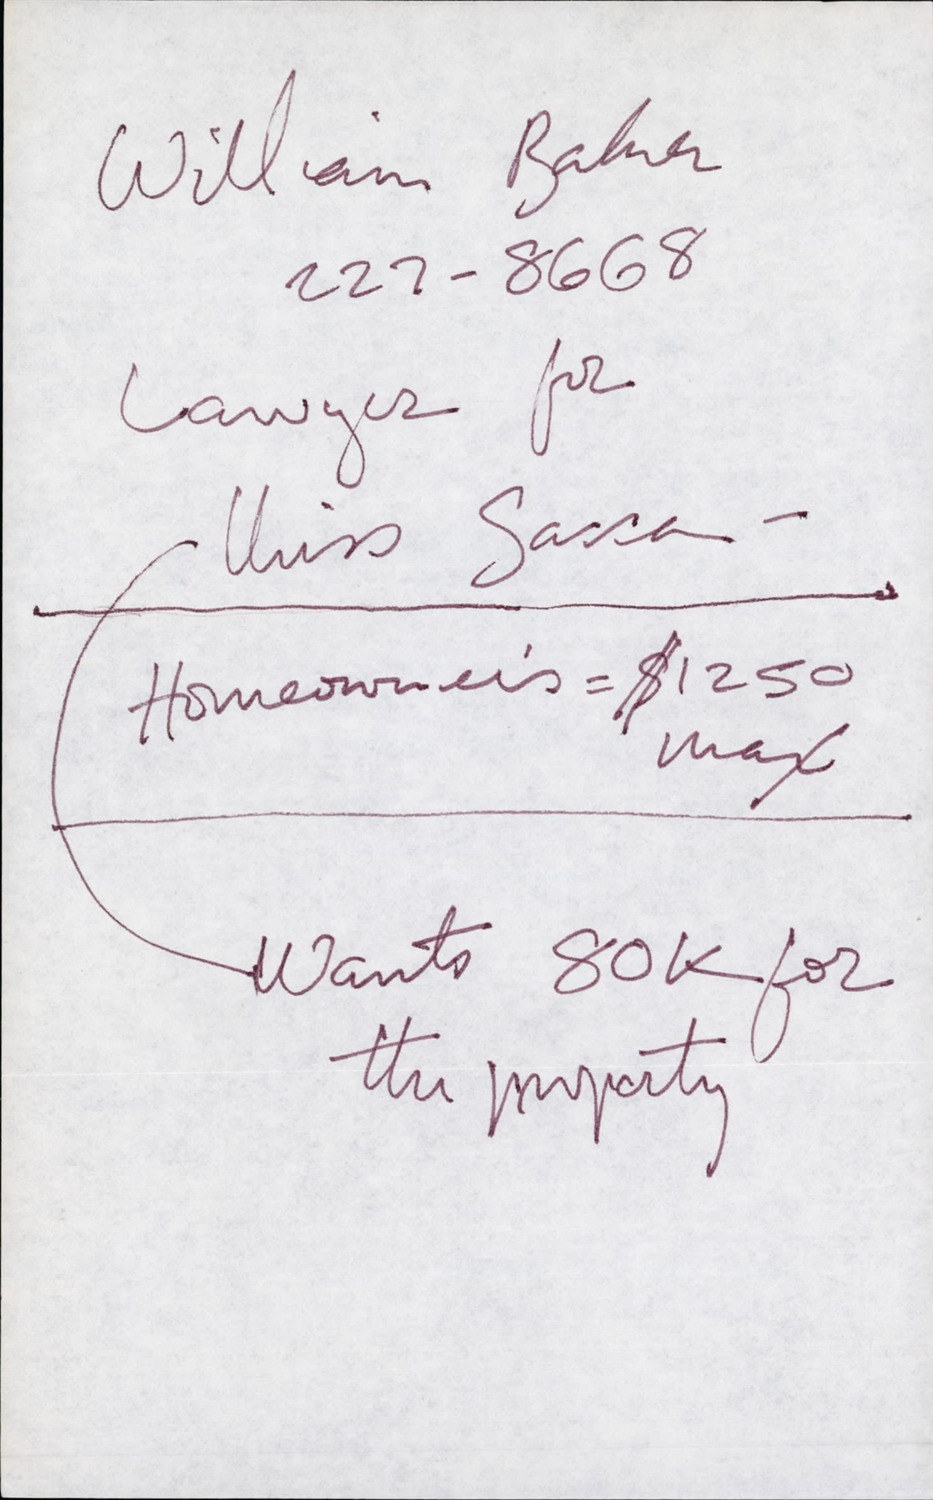 William Baker
227-8668
Lawyer for
Miss Sassa -
Homeowner's = $1250
max
Wants 80K for
the property